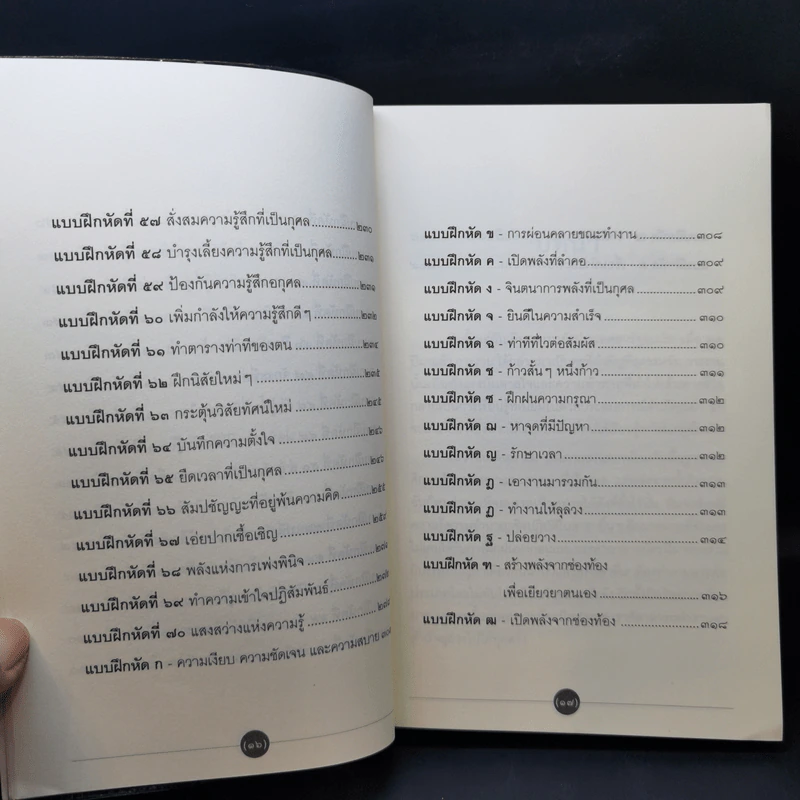 แบบฝึกหัดที่ ๕๗ สั่งสมความรู้สึกที่เป็นกุศล.............๒๓๐
แบบฝึกหัดที่ ๕๘ บำรุงเลี้ยงความรู้สึกที่เป็นกุศล........๒๓๑
แบบฝึกหัดที่ ๕๙ ป้องกันความรู้สึกอกุศล................๒๓๑
แบบฝึกหัดที่ ๖๐ เพิ่มกำลังให้ความรู้สึกดีๆ..............๒๓๒
แบบฝึกหัดที่ ๖๑ ทำตารางท่าทีของตน...................๒๓๔
แบบฝึกหัดที่ ๖๒ ฝึกนิสัยใหม่ๆ............................๒๓๕
แบบฝึกหัดที่ ๖๓ กระตุ้นวิสัยทัศน์ใหม่...................๒๔๕
แบบฝึกหัดที่ ๖๔ บันทึกความตั้งใจ........................๒๔๖
แบบฝึกหัดที่ ๖๕ ยืดเวลาที่เป็นกุศล......................๒๔๖
แบบฝึกหัดที่ ๖๖ สัมปชัญญะที่อยู่พ้นความคิด..........๒๕๕
แบบฝึกหัดที่ ๖๗ เอ่ยปากเชื้อเชิญ.........................
แบบฝึกหัดที่ ๖๘ พลังแห่งการเพ่งพินิจ...................
แบบฝึกหัดที่ ๖๙ ทำความเข้าใจปฏิสัมพันธ์..............
แบบฝึกหัดที่ ๗๐ แสงสว่างแห่งความรู้....................
แบบฝึกหัด ก - ความเงียบ ความชัดเจน และความสบาย
(๑๖)
แบบฝึกหัด ข - การผ่อนคลายขณะทำงาน..............๓๐๘
แบบฝึกหัด ค - เปิดพลังที่ลำคอ............................๓๐๙
แบบฝึกหัด ง - จินตนาการพลังที่เป็นกุศล..............๓๐๙
แบบฝึกหัด จ - ยินดีในความสำเร็จ........................๓๑๐
แบบฝึกหัด ฉ - ท่าทีที่ไวต่อสัมผัส........................๓๑๐
แบบฝึกหัด ช - ก้าวสั้นๆ หนึ่งก้าว........................๓๑๑
แบบฝึกหัด ซ - ฝึกฝนความกรุณา.........................๓๑๒
แบบฝึกหัด ฌ - หาจุดที่มีปัญหา...........................๓๑๒
แบบฝึกหัด ญ - รักษาเวลา..................................๓๑๒
แบบฝึกหัด ฎ - เอางานมารวมกัน.........................๓๑๓
แบบฝึกหัด ฏ - ทำงานให้ลุล่วง............................๓๑๓
แบบฝึกหัด ฐ - ปล่อยวาง....................................๓๑๔
แบบฝึกหัด ฑ - สร้างพลังจากช่องท้อง
เพื่อเยียวยาตนเอง.........................๓๑๖
แบบฝึกหัด ฒ - เปิดพลังจากช่องท้อง...................๓๑๘
(๑๗)